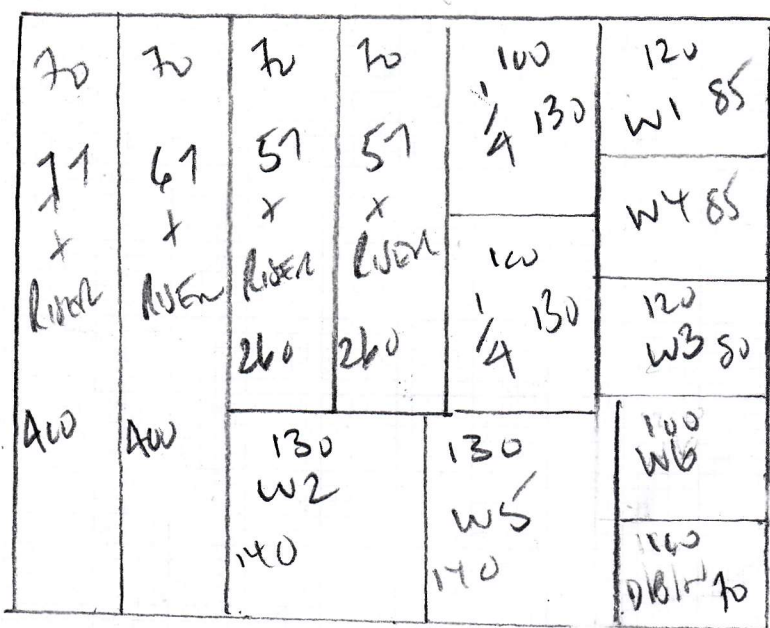 70
71
x
RIVER
400
70
61
x
RIVER
400
70
51
x
RIVER
260
70
51
x
RIVER
260
100
1/4 130
100
1/4 130
120
W1 85
W4 85
120
W3 80
130
W2
140
130
W5
140
100
W6
70